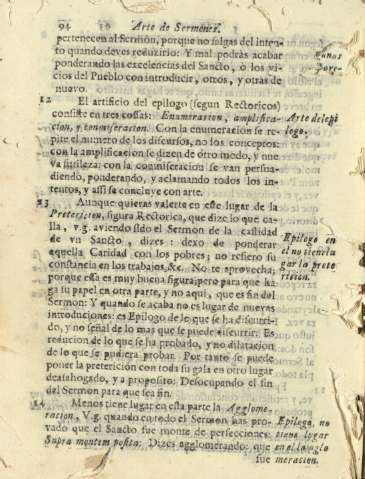 94 Arte de Sermones,
pertenecen al Sermon, porque no salgas del inten-
to quando deves reduzirlo: Y mal podràs acabar
ponderando las excelencias del Sancto, ò los vi-
cios del Pueblo con introducir, otros, y otras de
nuevo.
12 El artificio del epilogo (segun Rectoricos)
consiste en tres cossas: Enumeracion, amplifica-
cion, y conmiseracion. Con la enumeracion se re-
pite el numero de los discursos, no los conceptos:
con la amplificacion se dizen de otro modo, y nue
va sutileza: con la conmiseracion se van persua-
diendo, ponderando, y aclamando todos los in-
tentos, y assi sa concluye con arte.
Arte del epi
logo,
13 Aunque quieras valerte en este lugar de la
Pretericion, figura Rectorica, que dize lo que ca-
lla, v.g. aviendo sido el Sermon de la castidad
de vn Sancto, dizes: dexo de ponderar
aquella Caridad con los pobres; no refiero su
constancia en los trabajos, &c. No te aprovecha;
porque essa es muy buena figura; pero para que ha-
ga su papel en otra parte, y no aqui, que es fin del
Sermon: Y quando se acaba no es lugar de nuevas
introduciones: es Epilogo de lo que se ha discurri-
do, y no señal de lo mas que se puede discurrir. Es
reducion de lo que se ha probado, y no dilatacion
de lo que se pudiera probar. Por tanto se puede
poner la pretericiòn con toda su gala en otro lugar
desahogado, y a proposito: Desocupando el fin
del Sermon para que sea fin.
Epilogo en
el no tiene lu
gar la prete
ricion.
14 Menos tiene lugar en esta parte la Agglome-
racion, V.g. quando en todo el Sermon has pro-
vado que el Sancto fue monte de perfecciones,
Supra montem posita: Dizes agglomerando: que
fue
Epilogo, no
tiene lugar
en el la aglo
meracion.